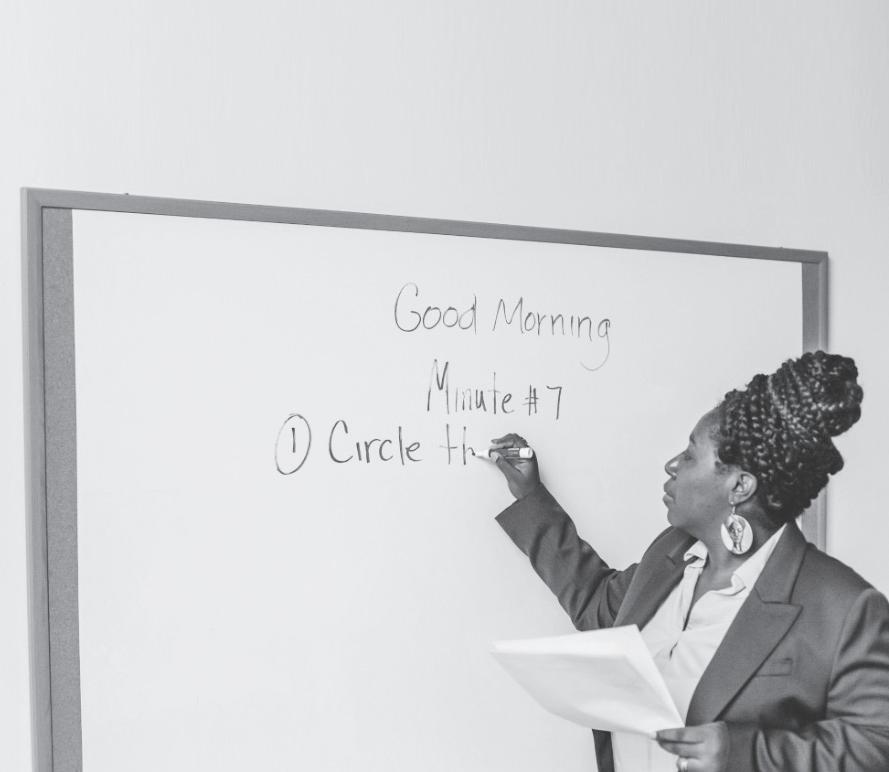 Good Morning
Minute #7
① Circle th